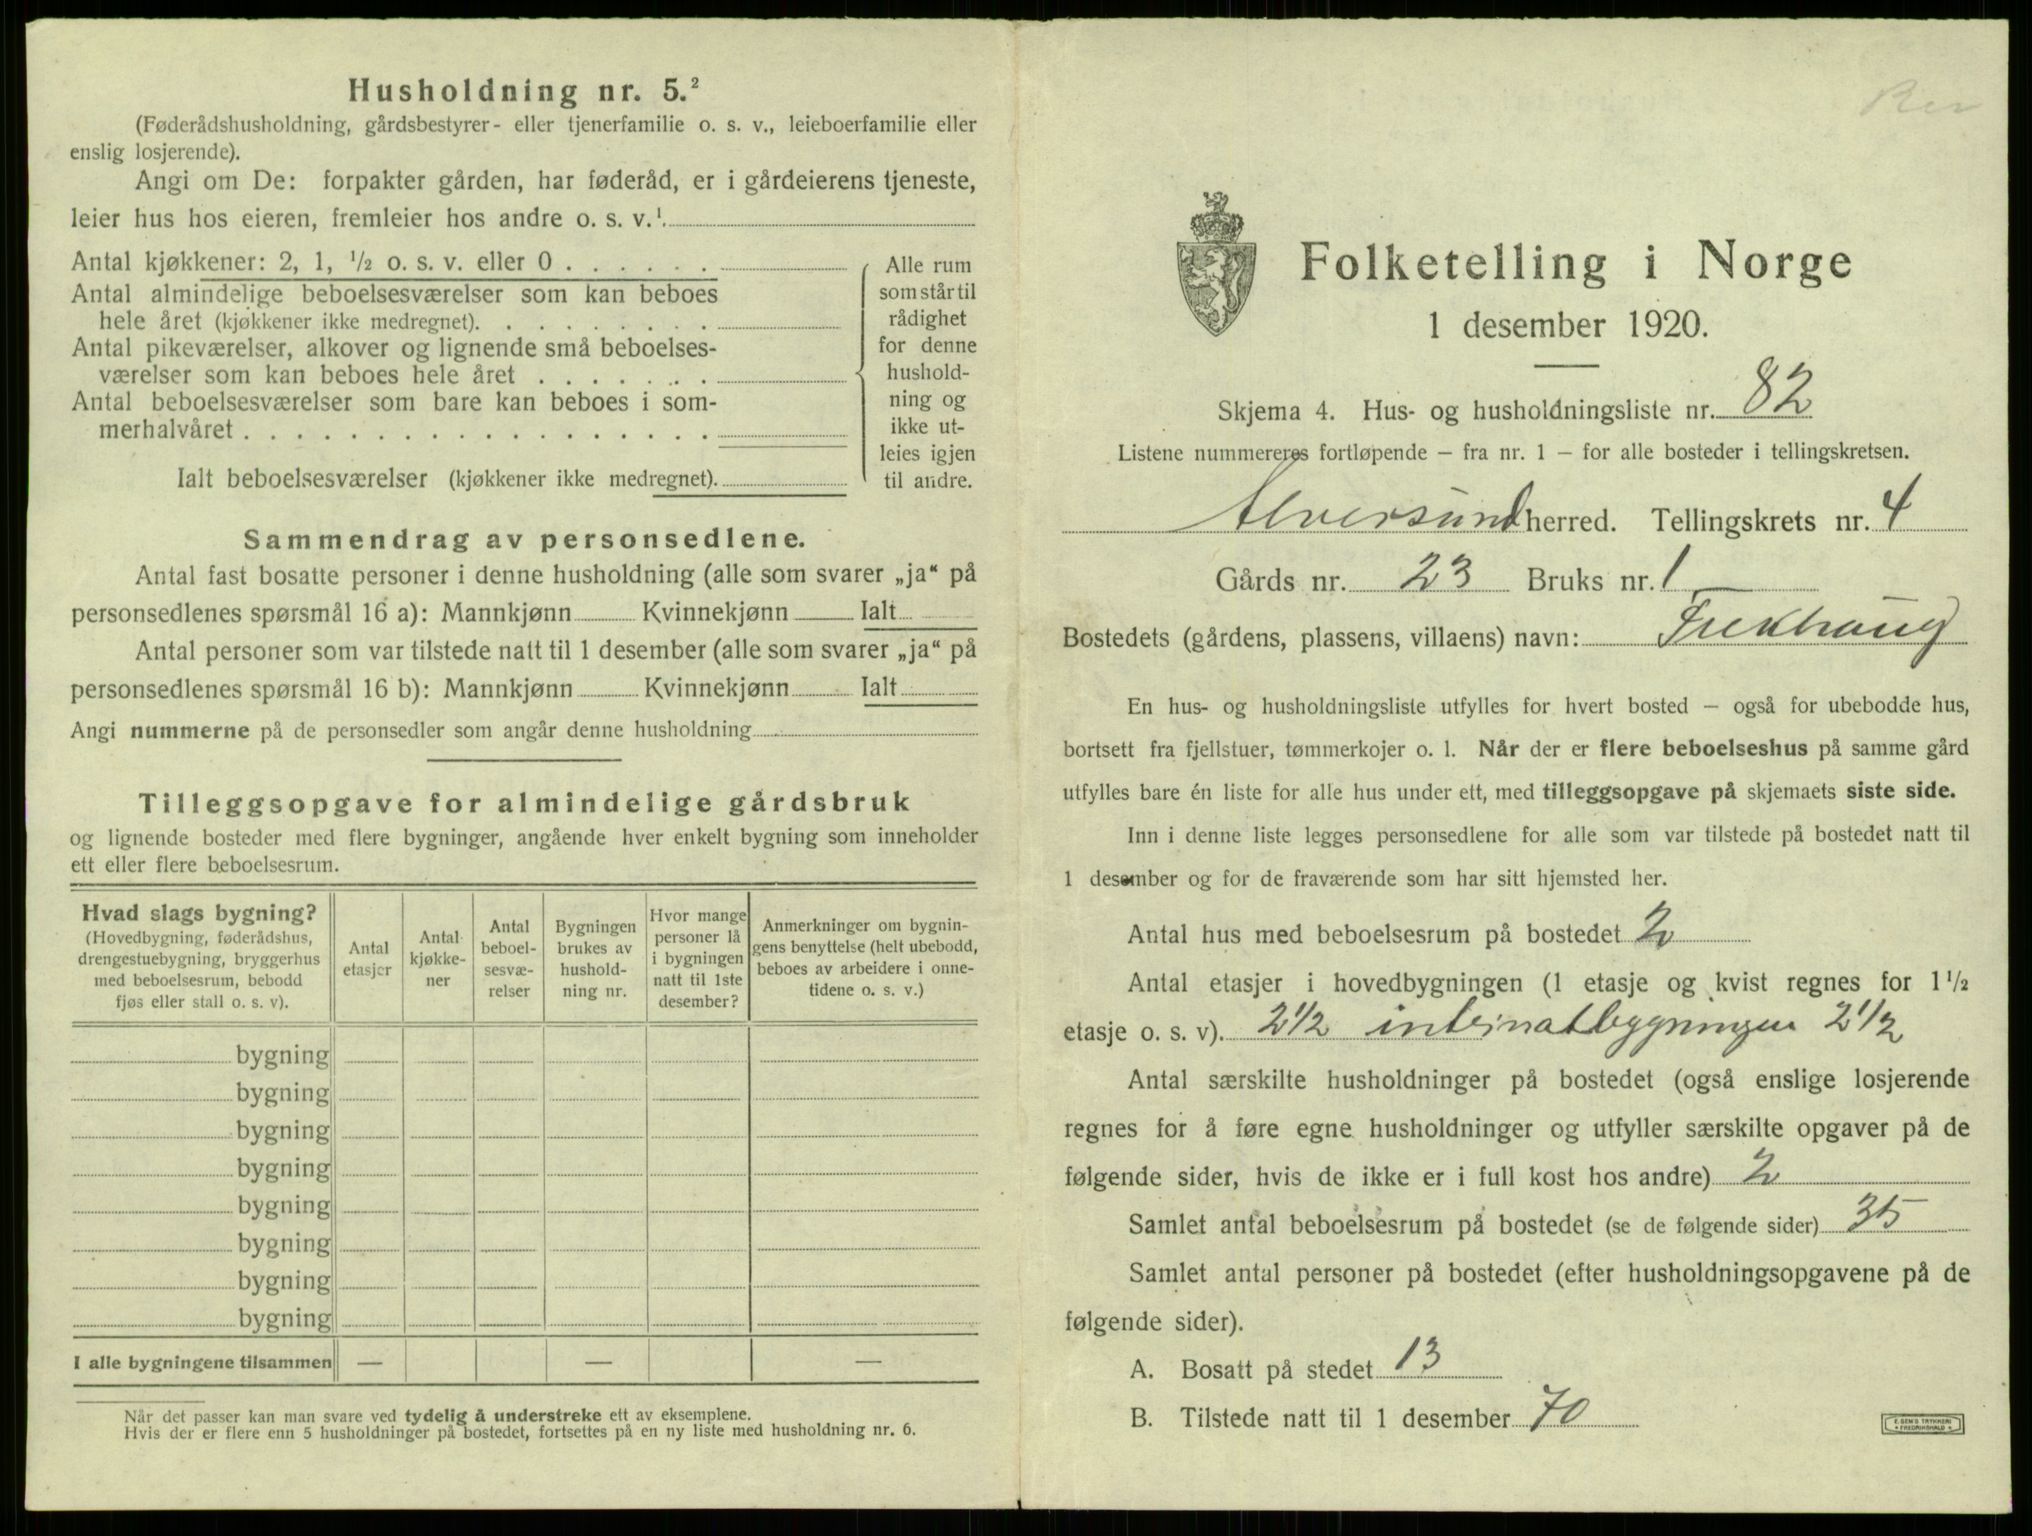 Husholdning nr. 5.²
(Føderådshusholdning, gårdsbestyrer- eller tjenerfamilie o. s. v., leieboerfamilie eller
enslig losjerende).
Angi om De: forpakter gården, har føderåd, er i gårdeierens tjeneste,
leier hus hos eieren, fremleier hos andre o. s. v.¹
Antal kjøkkener: 2, 1, ½ o. s. v. eller 0
Antal almindelige beboelsesværelser som kan beboes
hele året (kjøkkener ikke medregnet).
Antal pikeværelser, alkover og lignende små beboelses-
værelser som kan beboes hele året
Antal beboelsesværelser som bare kan beboes i som-
merhalvåret
Ialt beboelsesværelser (kjøkkener ikke medregnet).
Alle rum
som står til
rådighet
for denne
hushold-
ning og
ikke ut-
leies igjen
til andre.
Sammendrag av personsedlene.
Antal fast bosatte personer i denne husholdning (alle som svarer „ja“ på
personsedlenes spørsmål 16 a): Mannkjønn Kvinnekjønn Ialt
Antal personer som var tilstede natt til 1 desember (alle som svarer „ja“ på
personsedlenes spørsmål 16 b): Mannkjønn Kvinnekjønn Ialt
Angi nummerne på de personsedler som angår denne husholdning
Tilleggsopgave for almindelige gårdsbruk
og lignende bosteder med flere bygninger, angående hver enkelt bygning som inneholder
ett eller flere beboelsesrum.
Hvad slags bygning?
(Hovedbygning, føderådshus,
drengestuebygning, bryggerhus
med beboelsesrum, bebodd
fjøs eller stall o. s. v).
Antal
etasjer
Antal
kjøkke-
ner
Antal
beboel-
sesvæ-
relser
Bygningen
brukes av
hushold-
ning nr.
Hvor mange
personer lå
i bygningen
natt til 1ste
desember?
Anmerkninger om bygnin-
gens benyttelse (helt ubebodd,
beboes av arbeidere i onne-
tidene o. s. v.)
bygning
bygning
bygning
bygning
bygning
bygning
bygning
bygning
I alle bygningene tilsammen — — —
Når det passer kan man svare ved tydelig å understreke ett av eksemplene.
Hvis der er flere enn 5 husholdninger på bostedet, fortsettes på en ny liste med husholdning nr. 6.
Folketelling i Norge
1 desember 1920.
Skjema 4. Hus- og husholdningsliste nr. 82
Listene nummereres fortløpende – fra nr. 1 – for alle bosteder i tellingskretsen.
Alversund herred. Tellingskrets nr. 4
Gårds nr. 23 Bruks nr. 1
Bostedets (gårdens, plassens, villaens) navn: Frekhaug
En hus- og husholdningsliste utfylles for hvert bosted – også for ubebodde hus,
bortsett fra fjellstuer, tømmerkojer o. l. Når der er flere beboelseshus på samme gård
utfylles bare én liste for alle hus under ett, med tilleggsopgave på skjemaets siste side.
Inn i denne liste legges personsedlene for alle som var tilstede på bostedet natt til
1 desember og for de fraværende som har sitt hjemsted her.
Antal hus med beboelsesrum på bostedet 2
Antal etasjer i hovedbygningen (1 etasje og kvist regnes for 1½
etasje o. s. v). 2½ internatbygningen 2½
Antal særskilte husholdninger på bostedet (også enslige losjerende
regnes for å føre egne husholdninger og utfyller særskilte opgaver på de
følgende sider, hvis de ikke er i full kost hos andre) 2
Samlet antal beboelsesrum på bostedet (se de følgende sider) 35
Samlet antal personer på bostedet (efter husholdningsopgavene på de
følgende sider).
A. Bosatt på stedet 13
B. Tilstede natt til 1 desember 70
E. SEM'S TRYKKERI
FREDRIKSHALD